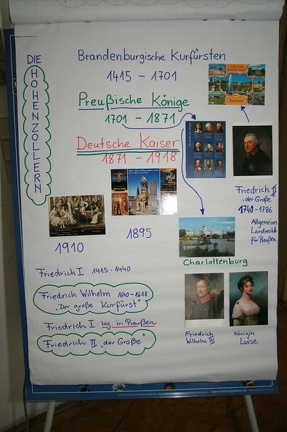 DIE HOHENZOLLERN
Brandenburgische Kurfürsten
1415 - 1701
Preußische Könige
1701 - 1871
Deutsche Kaiser
1871 - 1918
1910
1895
Friedrich II
"der Große"
1740-1786
Allgemeines
Landrecht
für Preußen
Charlottenburg
Friedrich I 1415-1440
Friedrich Wilhelm 1640-1688
"Der große Kurfürst"
Friedrich I kg. in Preußen
Friedrich II "der Große"
Friedrich
Wilhelm III
Königin
Luise